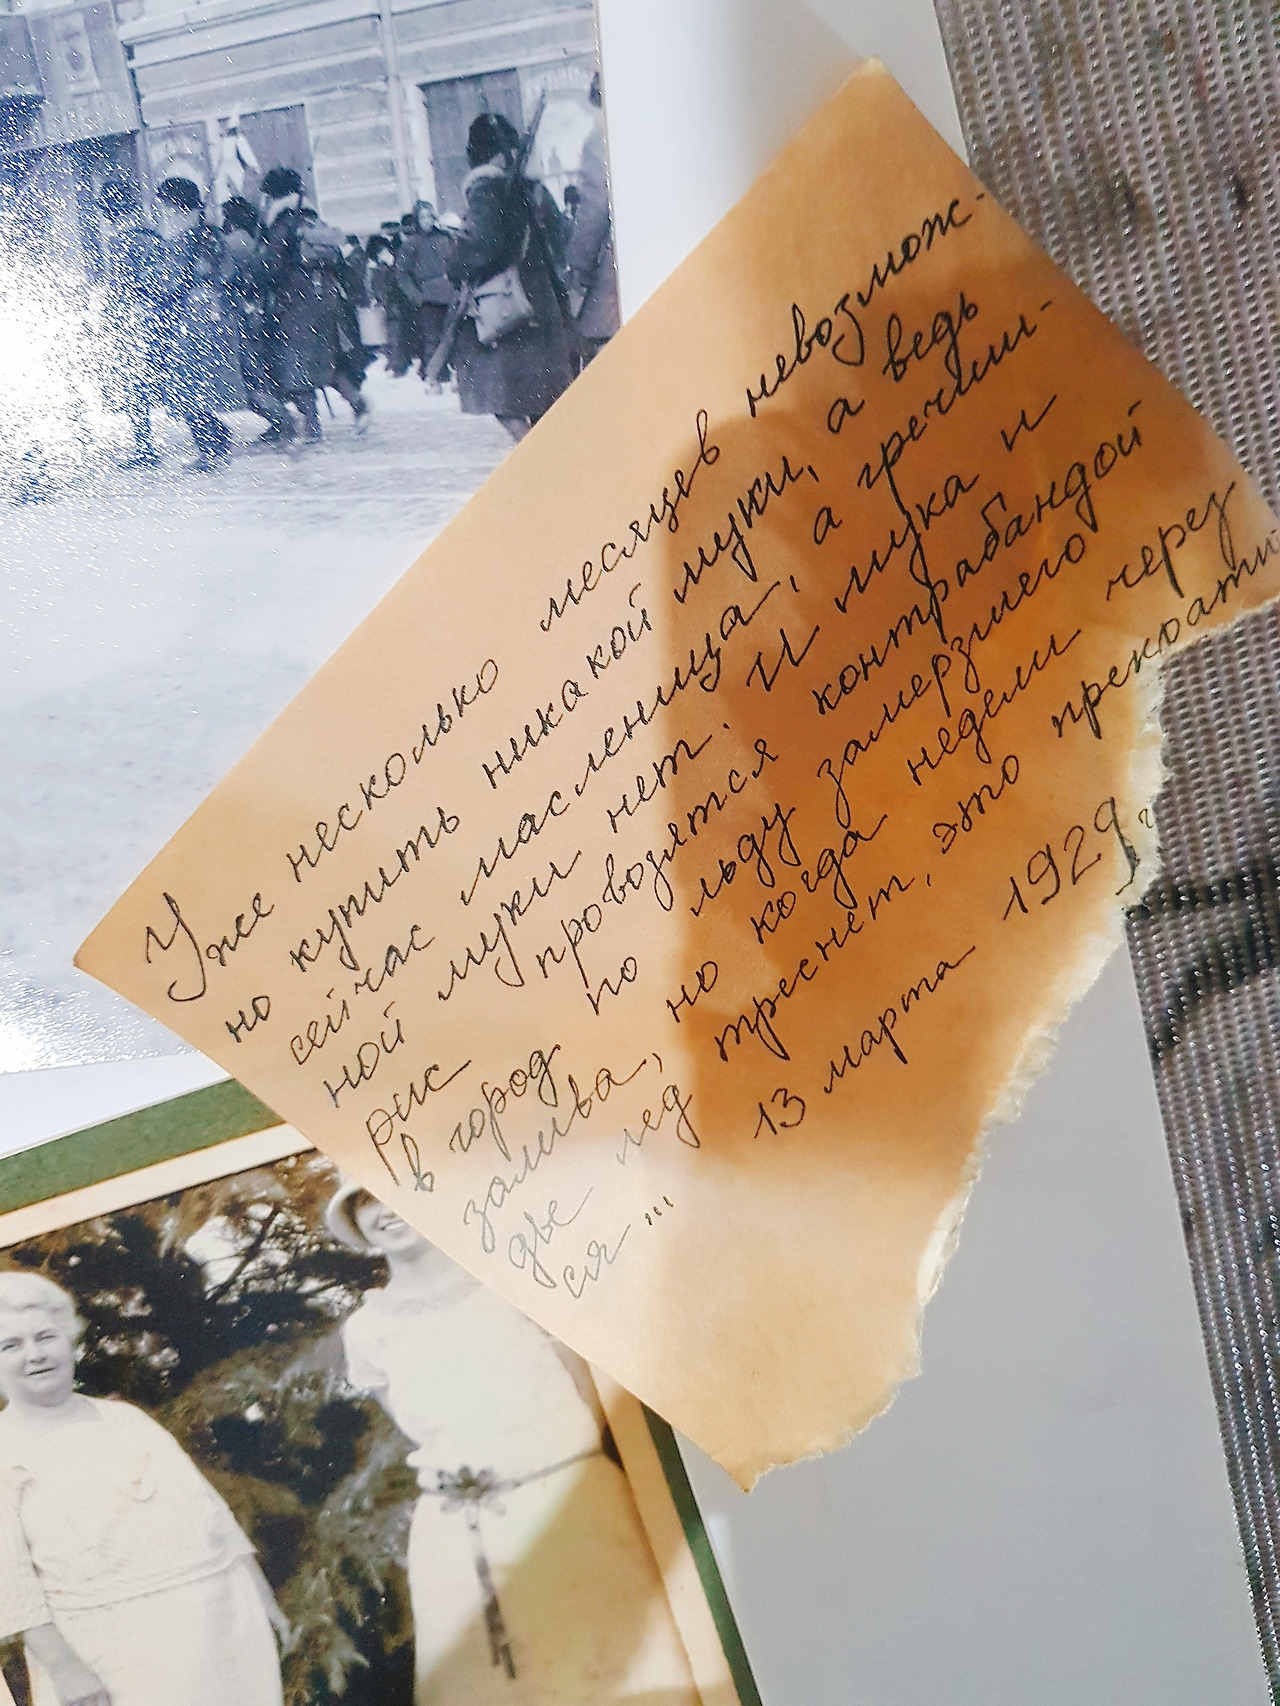 Уже несколько месяцев невозмож-
но купить никакой муки, а ведь
сейчас масленица, а гречиш-
ной муки нет. И мука и
рис провозятся контрабандой
в город по льду замерзшего
залива, но когда недели через
две лед треснет, это прекрати-
ся...
13 марта 1929 г.